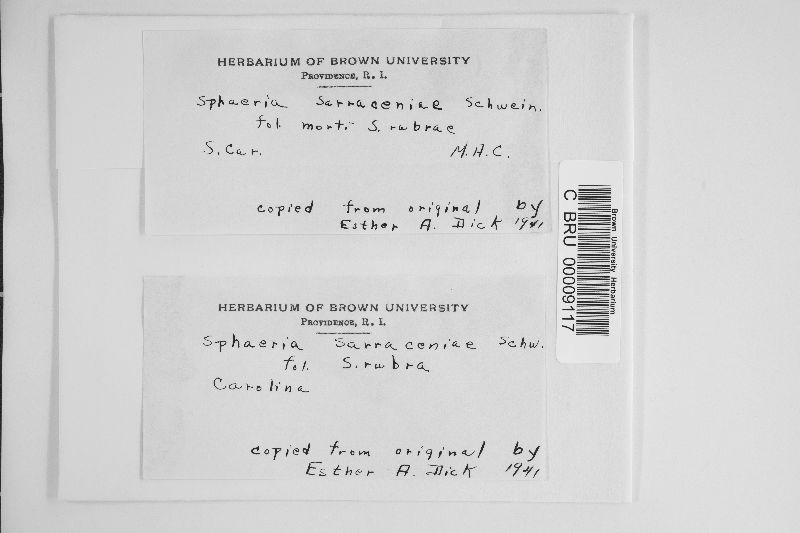 HERBARIUM OF BROWN UNIVERSITY
PROVIDENCE, R. I.
Sphaeria Sarraceniae Schwein.
fol. mort. S. rubrae
S. Car. M.A.C.
copied from original by
Esther A. Dick 1941
HERBARIUM OF BROWN UNIVERSITY
PROVIDENCE, R. I.
Sphaeria Sarraceniae Schw.
fol. S. rubra
Carolina
copied from original by
Esther A. Dick 1941
Brown University Herbarium
C BRU 00009117